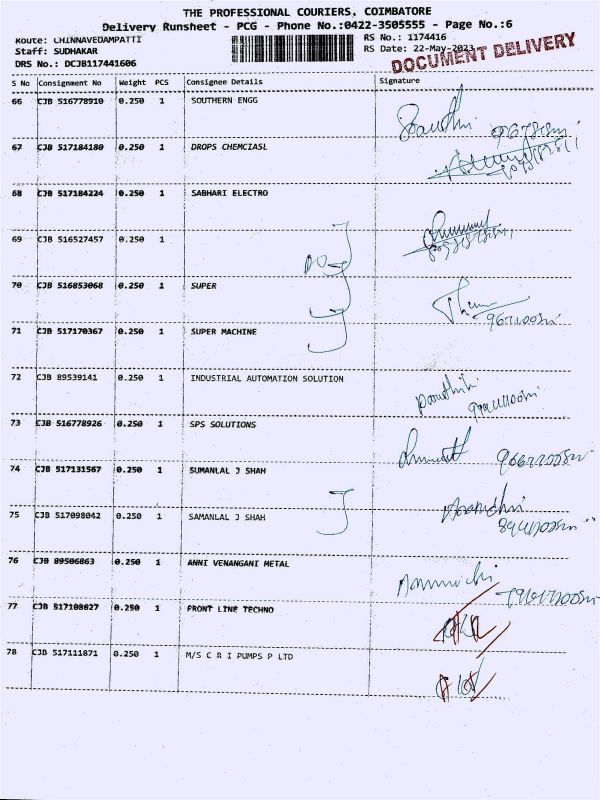 THE PROFESSIONAL COURIERS, COIMBATORE
Delivery Runsheet - PCG - Phone No.:0422-3505555 - Page No.:6
Route: CHINNAVEDAMPATTI RS No.: 1174416
Staff: SUDHAKAR RS Date: 22-May-2023
DRS No.: DCJB117441606
DOCUMENT DELIVERY
S No Consignment No Weight PCS Consignee Details Signature
66 CJB 516778910 0.250 1 SOUTHERN ENGG
67 CJB 517184180 0.250 1 DROPS CHEMCIASL
68 CJB 517184224 0.250 1 SABHARI ELECTRO
69 CJB 516527457 0.250 1
70 CJB 516853068 0.250 1 SUPER
71 CJB 517170367 0.250 1 SUPER MACHINE
72 CJB 89539141 0.250 1 INDUSTRIAL AUTOMATION SOLUTION
73 CJB 516778926 0.250 1 SPS SOLUTIONS
74 CJB 517131567 0.250 1 SUMANLAL J SHAH
75 CJB 517098042 0.250 1 SAMANLAL J SHAH
76 CJB 89506863 0.250 1 ANNI VENANGANI METAL
77 CJB 517108627 0.250 1 FRONT LINE TECHNO
78 CJB 517111871 0.250 1 M/S C R I PUMPS P LTD